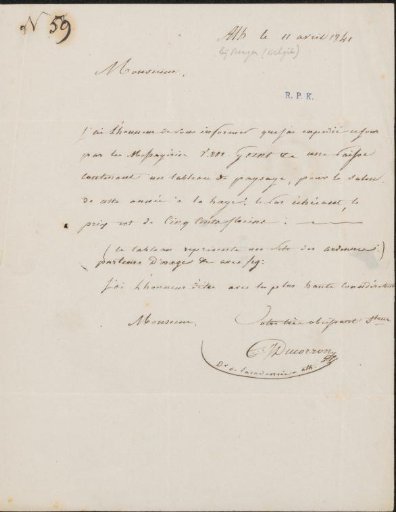 N 59
Ath le 11 avril 1841
(Belgie)
Monsieur,
R.P.K.
J'ai l'honneur de vous informer que j'ai expédié ce jour
par les Messageries une caisse
contenant un tableau de paysage, pour le salon
de cette année à la haye; le cas échéant, le
prix est de Cinq Cents florins :
(le tableau représente un site des ardennes)
J'ai l'honneur d'être avec la plus haute considération
Monsieur, Votre très obéissant
Ducorron
Dr de l'académie ath.